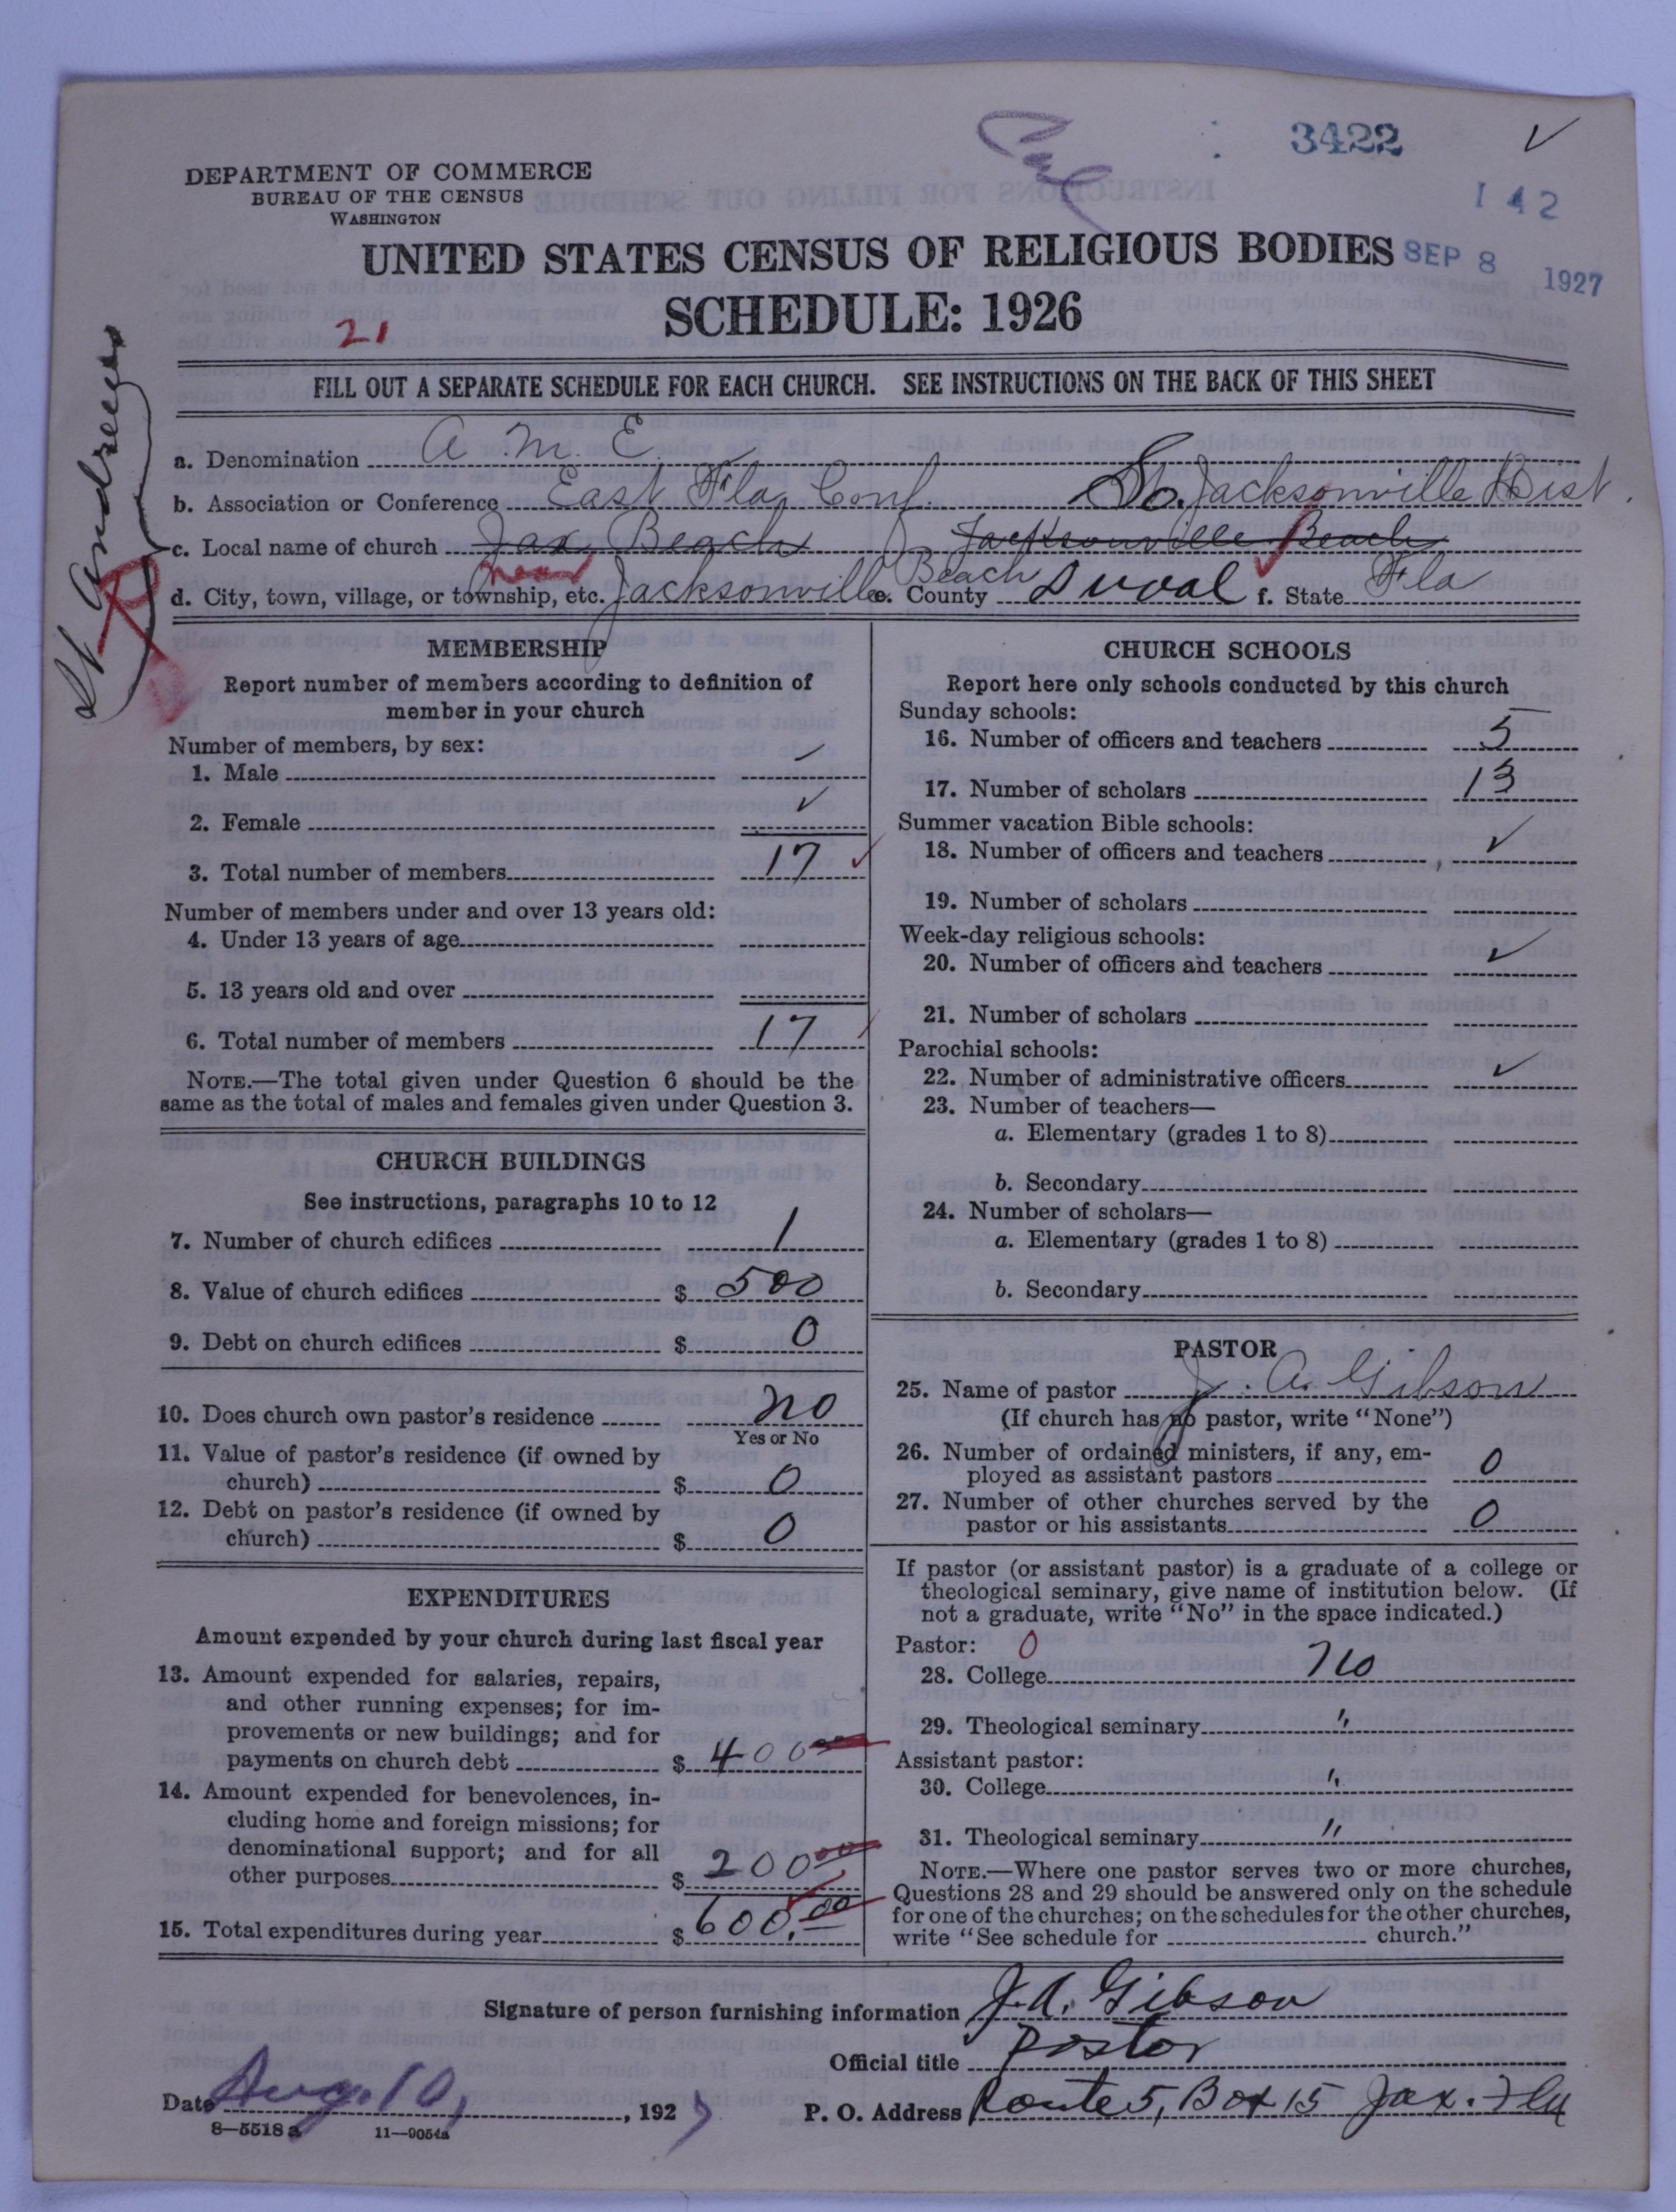 3422
DEPARTMENT OF COMMERCE
BUREAU OF THE CENSUS
WASHINGTON
142
UNITED STATES CENSUS OF RELIGIOUS BODIES
SEP 8 1927
SCHEDULE: 1926
21
FILL OUT A SEPARATE SCHEDULE FOR EACH CHURCH. SEE INSTRUCTIONS ON THE BACK OF THIS SHEET
St Andrews
a. Denomination A. M. E.
b. Association or Conference East Fla, Conf. So. Jacksonville Dist.
c. Local name of church Jax Beach Jacksonville Beach
near Beach
d. City, town, village, or township, etc. Jacksonville e. County Duval f. State Fla
MEMBERSHIP
Report number of members according to definition of
member in your church
Number of members, by sex:
1. Male ✓
2. Female ✓
3. Total number of members 17
Number of members under and over 13 years old:
4. Under 13 years of age
5. 13 years old and over
6. Total number of members 17
NOTE.—The total given under Question 6 should be the
same as the total of males and females given under Question 3.
CHURCH BUILDINGS
See instructions, paragraphs 10 to 12
7. Number of church edifices 1
8. Value of church edifices $ 500
9. Debt on church edifices $ 0
10. Does church own pastor's residence no
Yes or No
11. Value of pastor's residence (if owned by
church) $ 0
12. Debt on pastor's residence (if owned by
church) $ 0
EXPENDITURES
Amount expended by your church during last fiscal year
13. Amount expended for salaries, repairs,
and other running expenses; for im-
provements or new buildings; and for
payments on church debt $ 400 00
14. Amount expended for benevolences, in-
cluding home and foreign missions; for
denominational support; and for all
other purposes $ 200 00
15. Total expenditures during year $ 600.00
CHURCH SCHOOLS
Report here only schools conducted by this church
Sunday schools:
16. Number of officers and teachers 5
17. Number of scholars 13
Summer vacation Bible schools:
18. Number of officers and teachers ✓
19. Number of scholars
Week-day religious schools:
20. Number of officers and teachers ✓
21. Number of scholars
Parochial schools:
22. Number of administrative officers ✓
23. Number of teachers—
a. Elementary (grades 1 to 8)
b. Secondary
24. Number of scholars—
a. Elementary (grades 1 to 8)
b. Secondary
PASTOR
25. Name of pastor J. A. Gibson
(If church has no pastor, write "None")
26. Number of ordained ministers, if any, em-
ployed as assistant pastors 0
27. Number of other churches served by the
pastor or his assistants 0
If pastor (or assistant pastor) is a graduate of a college or
theological seminary, give name of institution below. (If
not a graduate, write "No" in the space indicated.)
Pastor: 0
28. College no
29. Theological seminary "
Assistant pastor:
30. College "
31. Theological seminary "
NOTE.—Where one pastor serves two or more churches,
Questions 28 and 29 should be answered only on the schedule
for one of the churches; on the schedules for the other churches,
write "See schedule for church."
Signature of person furnishing information J. A. Gibson
Official title Pastor
Date Aug. 10, , 1927
P. O. Address Route 5, Box 15 Jax. Fla
8—5518 a 11—9054a